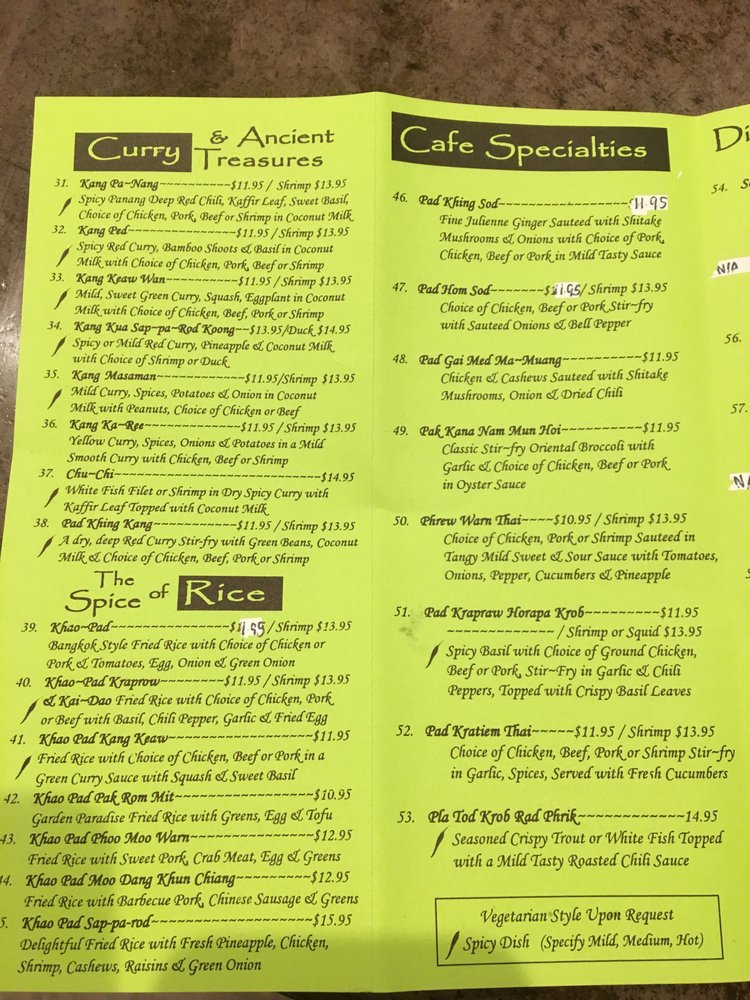 Curry & Ancient Treasures
31. Kang Pa~Nang~~~~~~~~~~$11.95 / Shrimp $13.95
Spicy Panang Deep Red Chili, Kaffir Leaf, Sweet Basil,
Choice of Chicken, Pork, Beef or Shrimp in Coconut Milk
32. Kang Ped~~~~~~~~~~~~~~~$11.95 / Shrimp $13.95
Spicy Red Curry, Bamboo Shoots & Basil in Coconut
Milk with Choice of Chicken, Pork, Beef or Shrimp
33. Kang Keaw Wan~~~~~~~~~~$11.95 / Shrimp $13.95
Mild, Sweet Green Curry, Squash, Eggplant in Coconut
Milk with Choice of Chicken, Beef, Pork or Shrimp
34. Kang Kua Sap~pa~Rod Koong~~$13.95/Duck $14.95
Spicy or Mild Red Curry, Pineapple & Coconut Milk
with Choice of Shrimp or Duck
35. Kang Masaman~~~~~~~~~~~~$11.95/Shrimp $13.95
Mild Curry, Spices, Potatoes & Onion in Coconut
Milk with Peanuts, Choice of Chicken or Beef
36. Kang Ka~Ree~~~~~~~~~~~~~$11.95 / Shrimp $13.95
Yellow Curry, Spices, Onions & Potatoes in a Mild
Smooth Curry with Chicken, Beef or Shrimp
37. Chu~Chi~~~~~~~~~~~~~~~~~~~~~~~~~~~$14.95
White Fish Filet or Shrimp in Dry Spicy Curry with
Kaffir Leaf Topped with Coconut Milk
38. Pad Khing Kang~~~~~~~~~~~$11.95 / Shrimp $13.95
A dry, deep Red Curry Stir-fry with Green Beans, Coconut
Milk & Choice of Chicken, Beef, Pork or Shrimp
The Spice of Rice
39. Khao~Pad~~~~~~~~~~~~~~~~$11.95 / Shrimp $13.95
Bangkok Style Fried Rice with Choice of Chicken or
Pork & Tomatoes, Egg, Onion & Green Onion
40. Khao~Pad Kraprow~~~~~~~~$11.95 / Shrimp $13.95
& Kai~Dao Fried Rice with Choice of Chicken, Pork
or Beef with Basil, Chili Pepper, Garlic & Fried Egg
41. Khao Pad Kang Keaw~~~~~~~~~~~~~~~~~~~$11.95
Fried Rice with Choice of Chicken, Beef or Pork in a
Green Curry Sauce with Squash & Sweet Basil
42. Khao Pad Pak Rom Mit~~~~~~~~~~~~~~~~~~$10.95
Garden Paradise Fried Rice with Greens, Egg & Tofu
43. Khao Pad Phoo Moo Warn~~~~~~~~~~~~~~~~$12.95
Fried Rice with Sweet Pork, Crab Meat, Egg & Greens
44. Khao Pad Moo Dang Khun Chiang~~~~~~~~~~$12.95
Fried Rice with Barbecue Pork, Chinese Sausage & Greens
5. Khao Pad Sap-pa-rod~~~~~~~~~~~~~~~~~~~~$15.95
Delightful Fried Rice with Fresh Pineapple, Chicken,
Shrimp, Cashews, Raisins & Green Onion
Cafe Specialties
46. Pad Khing Sod~~~~~~~~~~~~~~~~~11.95
Fine Julienne Ginger Sauteed with Shitake
Mushrooms & Onions with Choice of Pork,
Chicken, Beef or Pork in Mild Tasty Sauce
47. Pad Hom Sod~~~~~~~$11.95/ Shrimp $13.95
Choice of Chicken, Beef or Pork Stir~fry
with Sauteed Onions & Bell Pepper
48. Pad Gai Med Ma~Muang~~~~~~~~~~$11.95
Chicken & Cashews Sauteed with Shitake
Mushrooms, Onion & Dried Chili
49. Pak Kana Nam Mun Hoi~~~~~~~~~~$11.95
Classic Stir~fry Oriental Broccoli with
Garlic & Choice of Chicken, Beef or Pork
in Oyster Sauce
50. Phrew Warn Thai~~~~$10.95 / Shrimp $13.95
Choice of Chicken, Pork or Shrimp Sauteed in
Tangy Mild Sweet & Sour Sauce with Tomatoes,
Onions, Pepper, Cucumbers & Pineapple
51. Pad Krapraw Horapa Krob~~~~~~~~~$11.95
~~~~~~~~~~~~~ / Shrimp or Squid $13.95
Spicy Basil with Choice of Ground Chicken,
Beef or Pork, Stir~Fry in Garlic & Chili
Peppers, Topped with Crispy Basil Leaves
52. Pad Kratiem Thai~~~~~$11.95 / Shrimp $13.95
Choice of Chicken, Beef, Pork or Shrimp Stir~fry
in Garlic, Spices, Served with Fresh Cucumbers
53. Pla Tod Krob Rad Phrik~~~~~~~~~~~~14.95
Seasoned Crispy Trout or White Fish Topped
with a Mild Tasty Roasted Chili Sauce
Vegetarian Style Upon Request
Spicy Dish (Specify Mild, Medium, Hot)
Di
54.
N/A
56.
57.